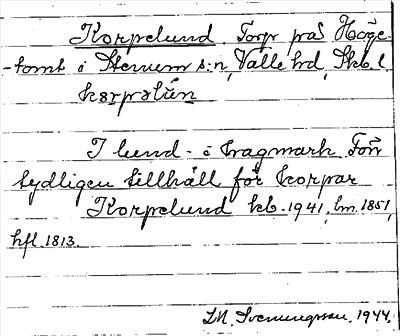 Korpelund Torp på Höge-
-tomt i Stenum s:n, Valle hd, Skb. l
kɔrpəlún
I lund i hagmark. För
tydligen tillhåll för korpar
Korpelund kb. 1941, hm. 1851,
hfl 1813.
Svenungsson, 1944.